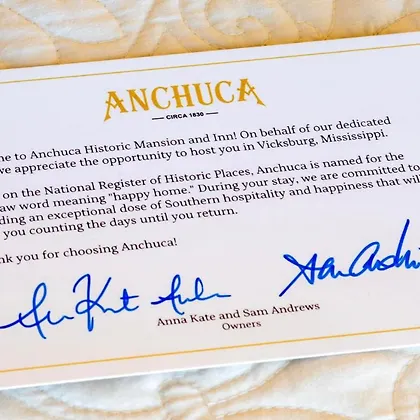 ANCHUCA
CIRCA 1830
to Anchuca Historic Mansion and Inn! On behalf of our dedicated
we appreciate the opportunity to host you in Vicksburg, Mississippi.
on the National Register of Historic Places, Anchuca is named for the
word meaning "happy home." During your stay, we are committed to
an exceptional dose of Southern hospitality and happiness that will
you counting the days until you return.
you for choosing Anchuca!
Anna Kate and Sam Andrews
Owners